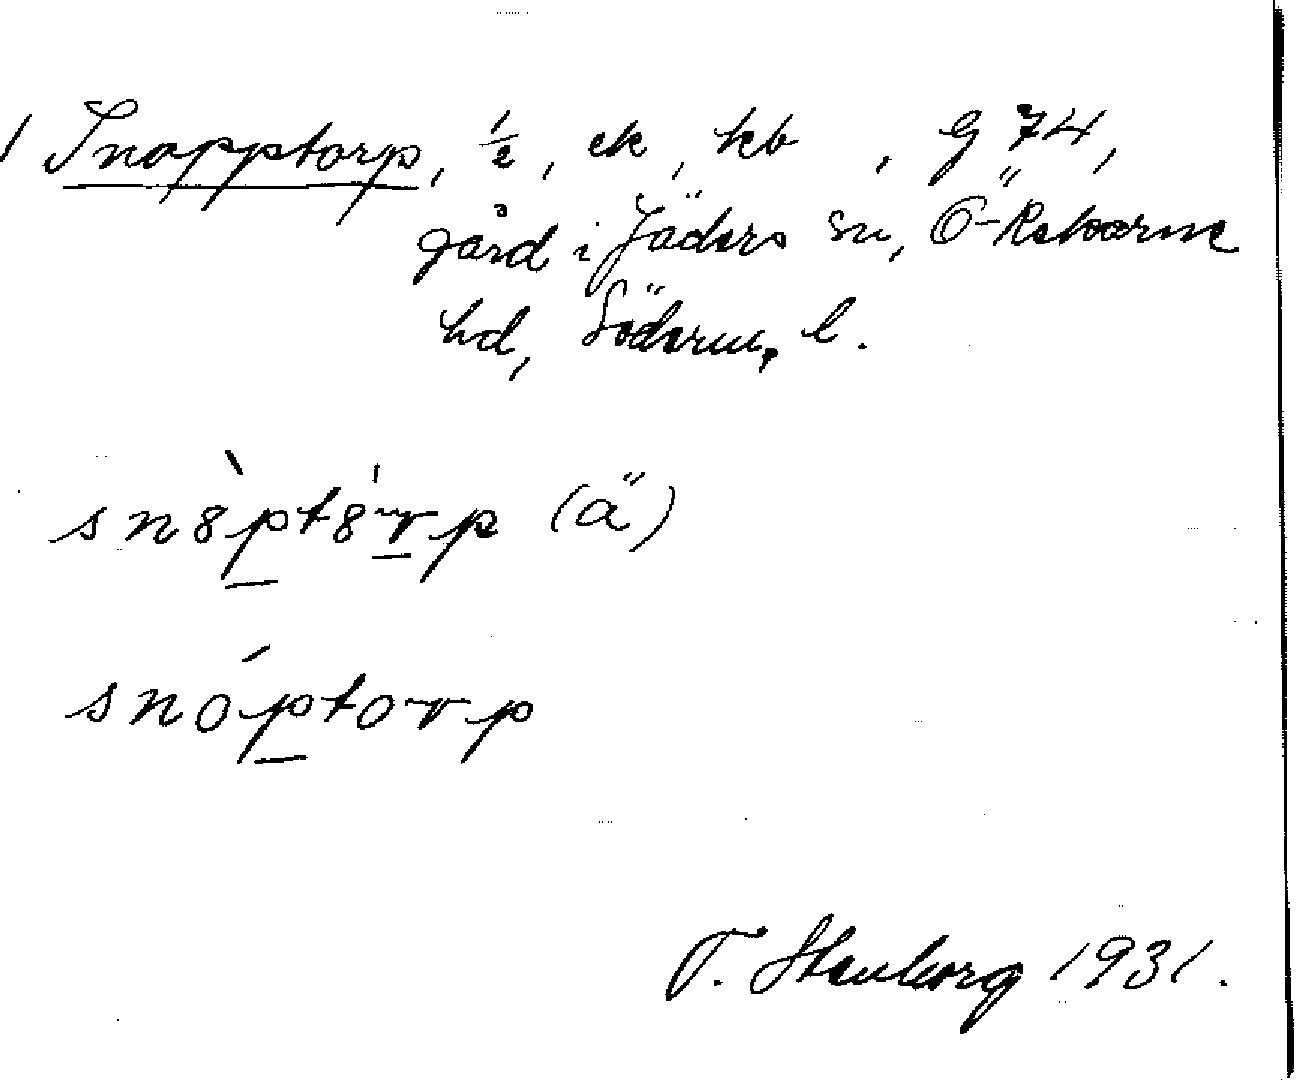 1 Snopptorp, ½, ek, kb, G 74,
gård i Jäders sn, Ö-Rekarne
hd, Söderm. l.
sn8̀pt8́rp (ä)
snóptorp
T. Stenborg 1931.